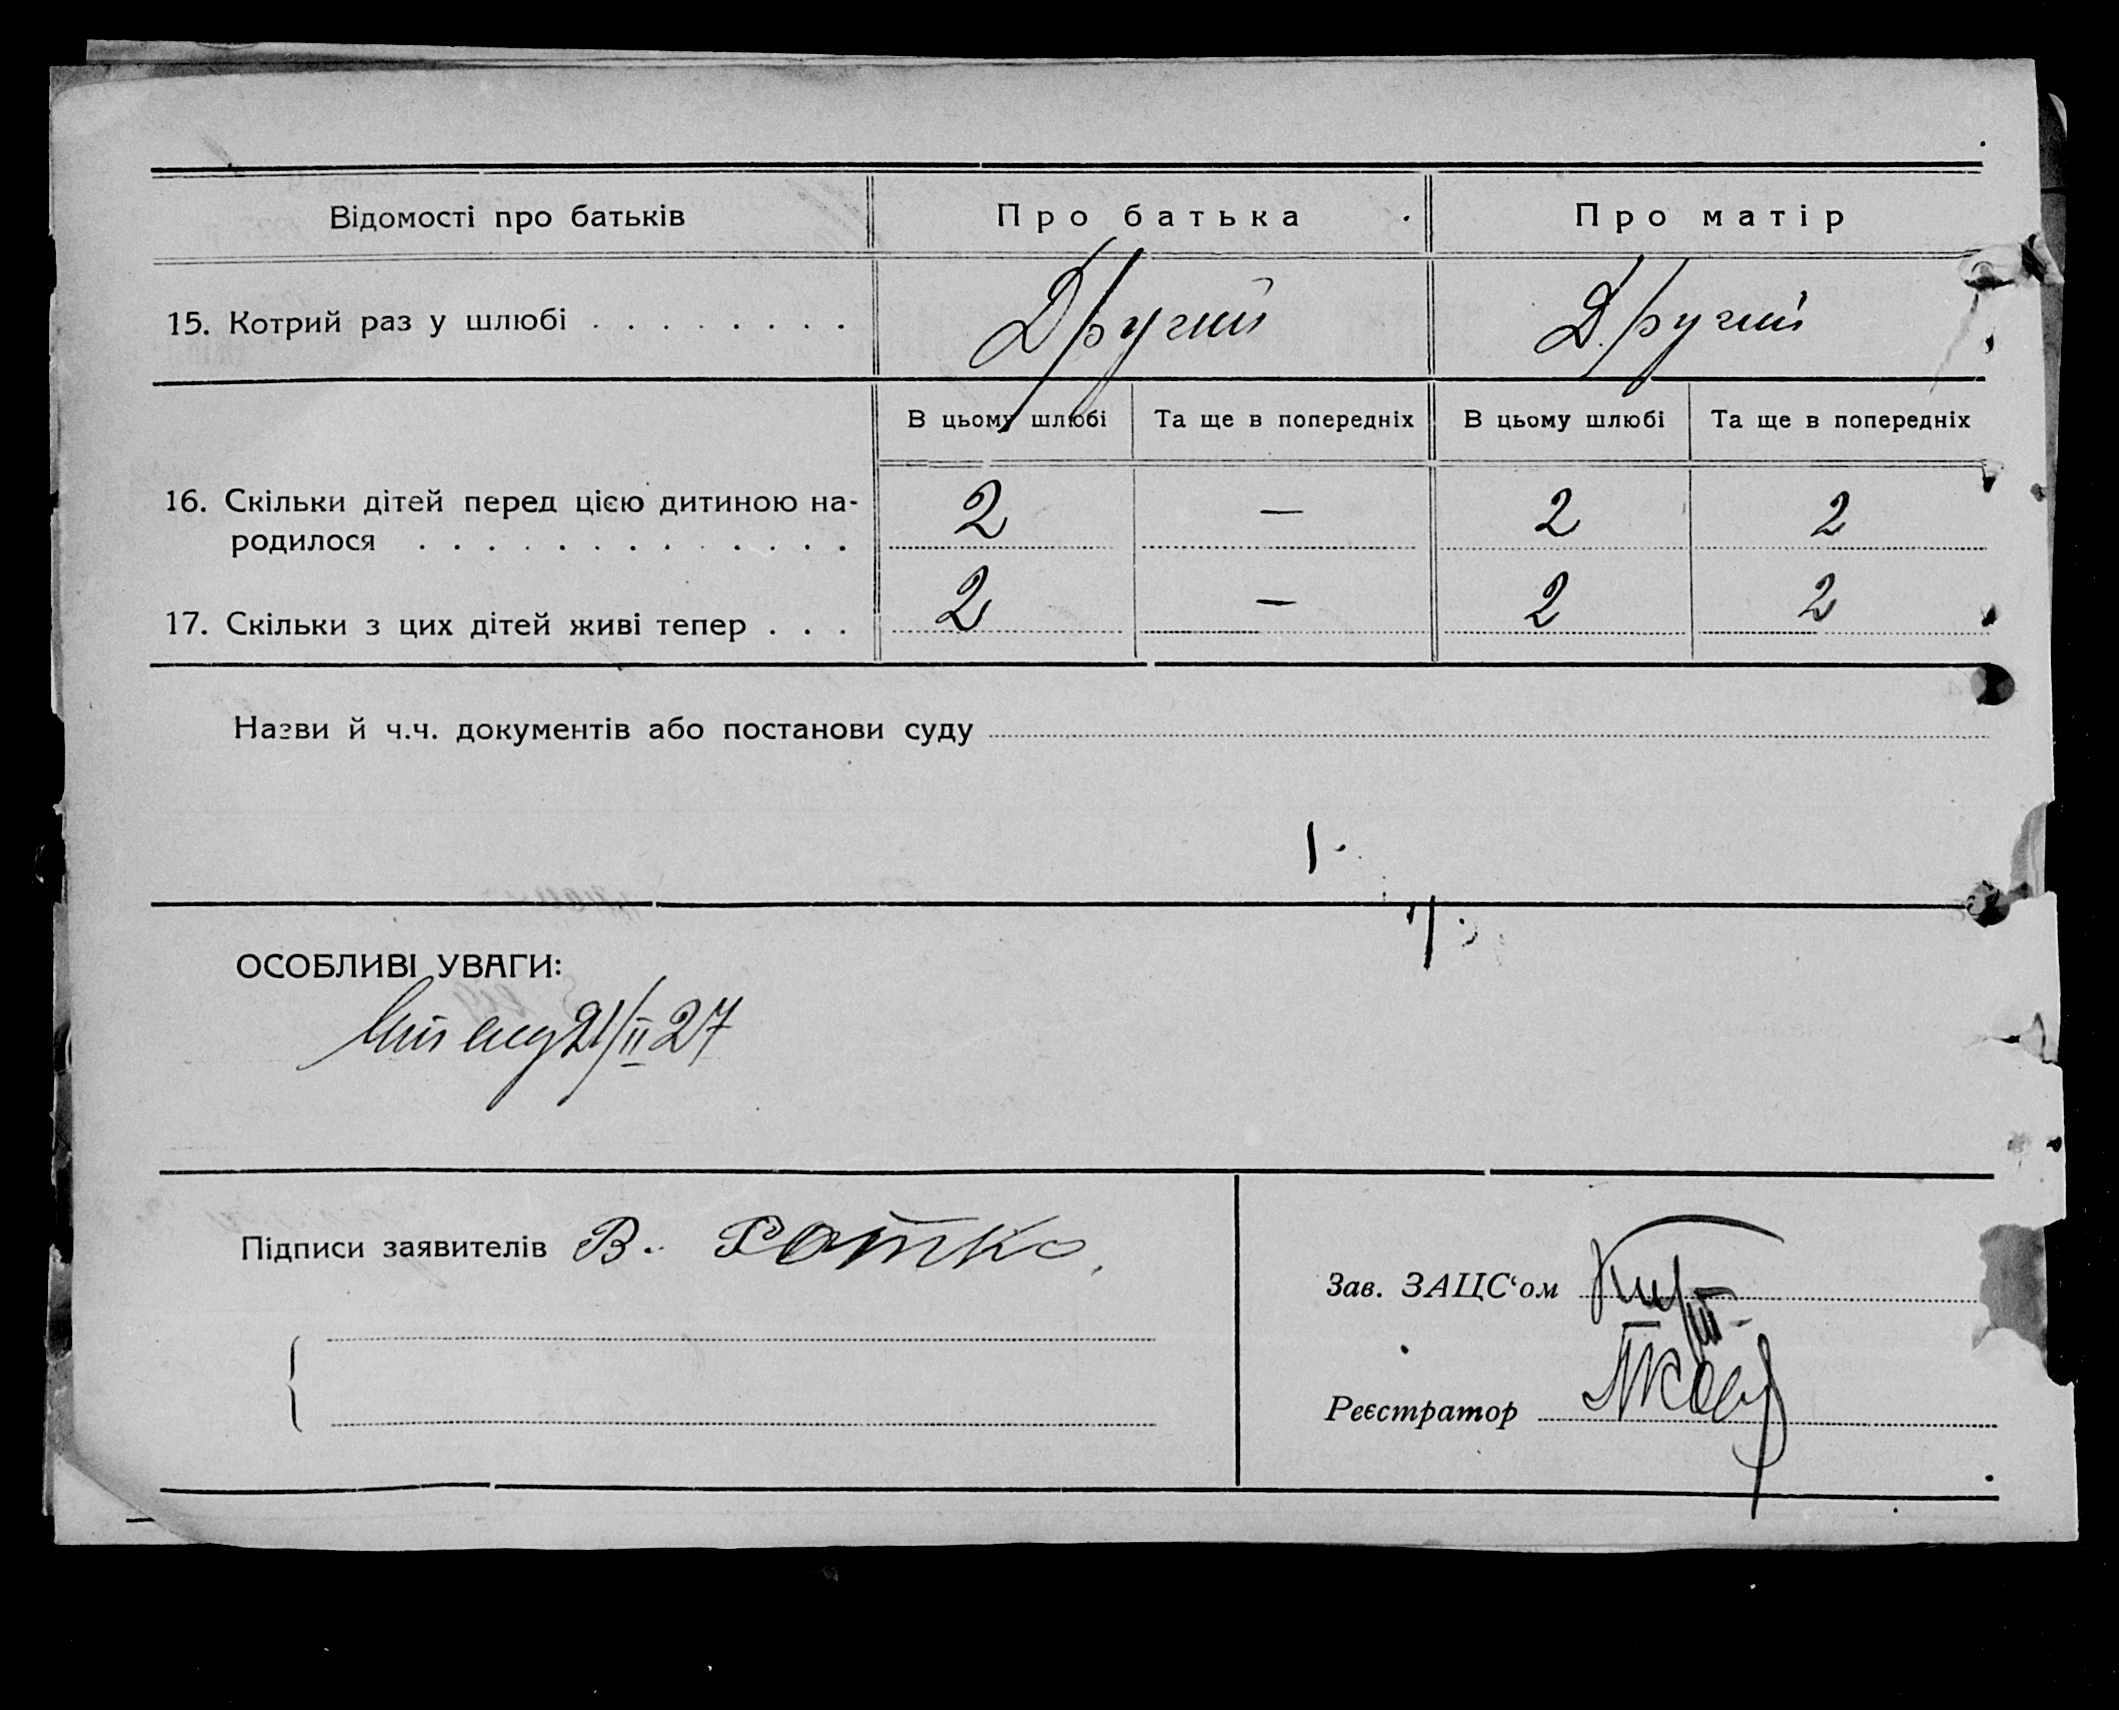 Відомості про батьків Про батька Про матір
15. Котрий раз у шлюбі . . . . . . . . Другий Другий
В цьому шлюбі Та ще в попередніх В цьому шлюбі Та ще в попередніх
16. Скільки дітей перед цією дитиною на-
родилося . . . . . . . . . . . . . 2 — 2 2
17. Скільки з цих дітей живі тепер . . . 2 — 2 2
Назви й ч.ч. документів або постанови суду
ОСОБЛИВІ УВАГИ:
21/II 27
Підписи заявителів В.
Зав. ЗАЦС‘ом
Реєстратор